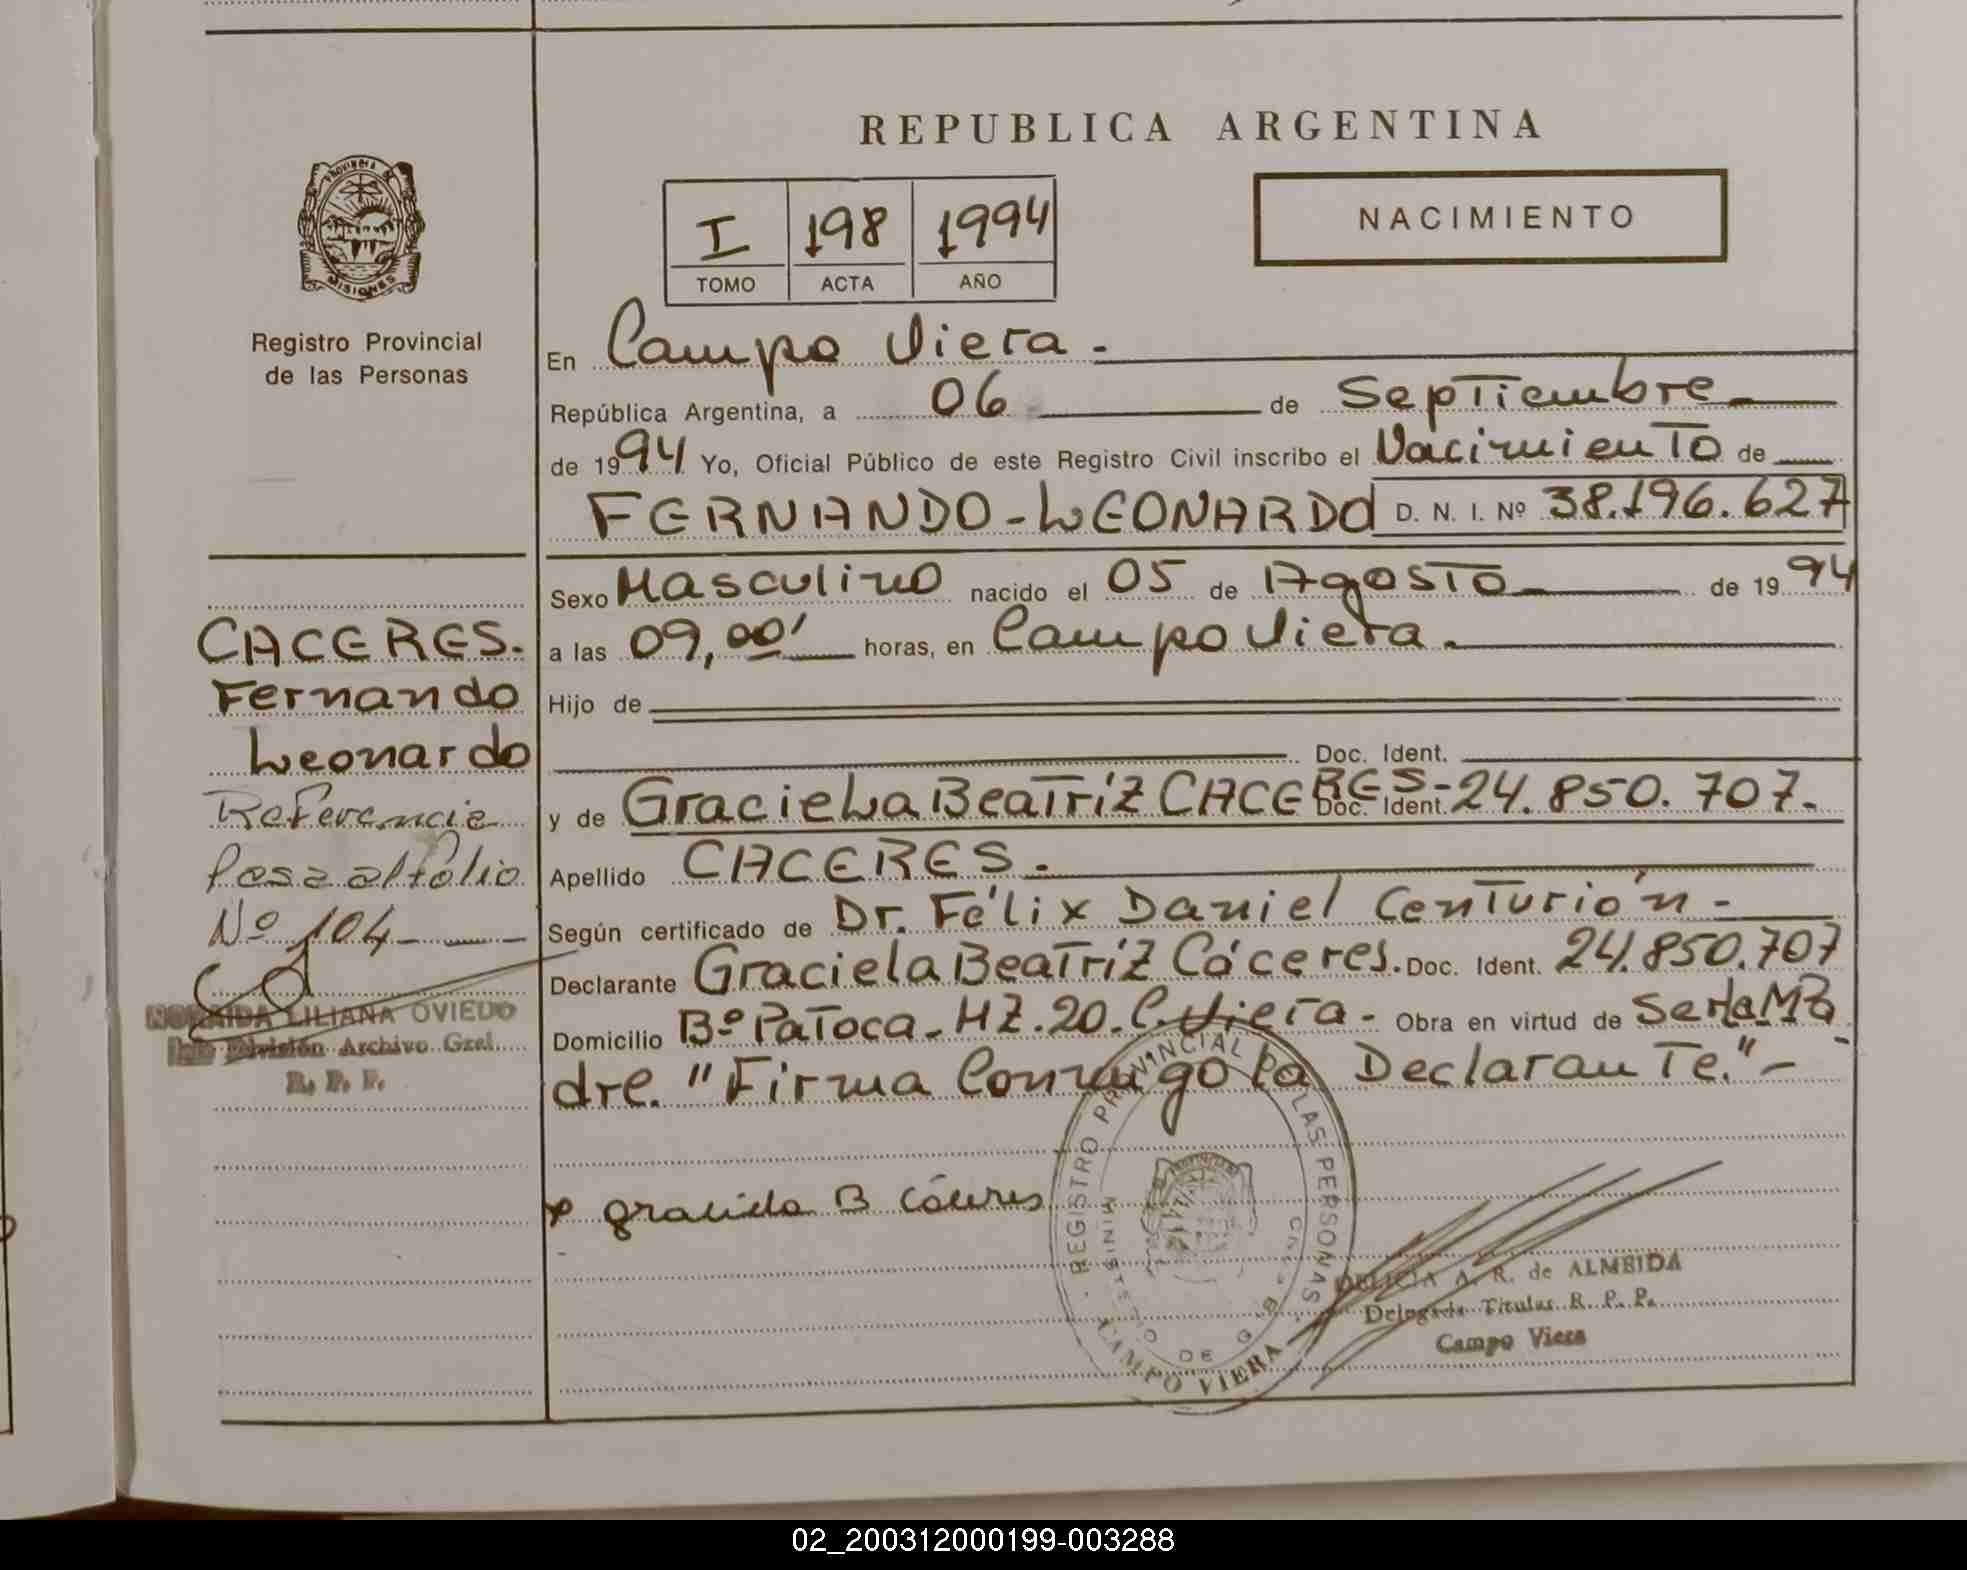 REPUBLICA ARGENTINA
PROVINCIA DE
MISIONES
Registro Provincial
de las Personas
I 198 1994
TOMO ACTA AÑO
NACIMIENTO
En Campo Viera.-
República Argentina, a 06 de Septiembre
de 1994 Yo, Oficial Público de este Registro Civil inscribo el Nacimiento de
FERNANDO-LEONARDO D. N. I. Nº 38.196.627
Sexo Masculino nacido el 05 de Agosto de 1994
a las 09,00' horas, en Campo Viera.
Hijo de
Doc. Ident.
y de Graciela Beatriz CACERES- Doc. Ident. 24.850.707.
Apellido CACERES.-
Según certificado de Dr. Félix Daniel Centurión-
Declarante Graciela Beatriz Cáceres. Doc. Ident. 24.850.707
Domicilio Bº Patoca-MZ.20.C.Viera- Obra en virtud de Ser la Ma
dre. "Firma Conmigo la Declarante."-
CACERES.
Fernando
Leonardo
Referencia
Pasa al folio
Nº 104
NORAIDA LILIANA OVIEDO
División Archivo Gral.
R. P. P.
x graciela B Cáceres
REGISTRO PROVINCIAL DE LAS PERSONAS
MINISTERIO DE
CAMPO VIERA
A. R. de ALMEIDA
Delegada Titular R. P. P.
Campo Viera
02_200312000199-003288